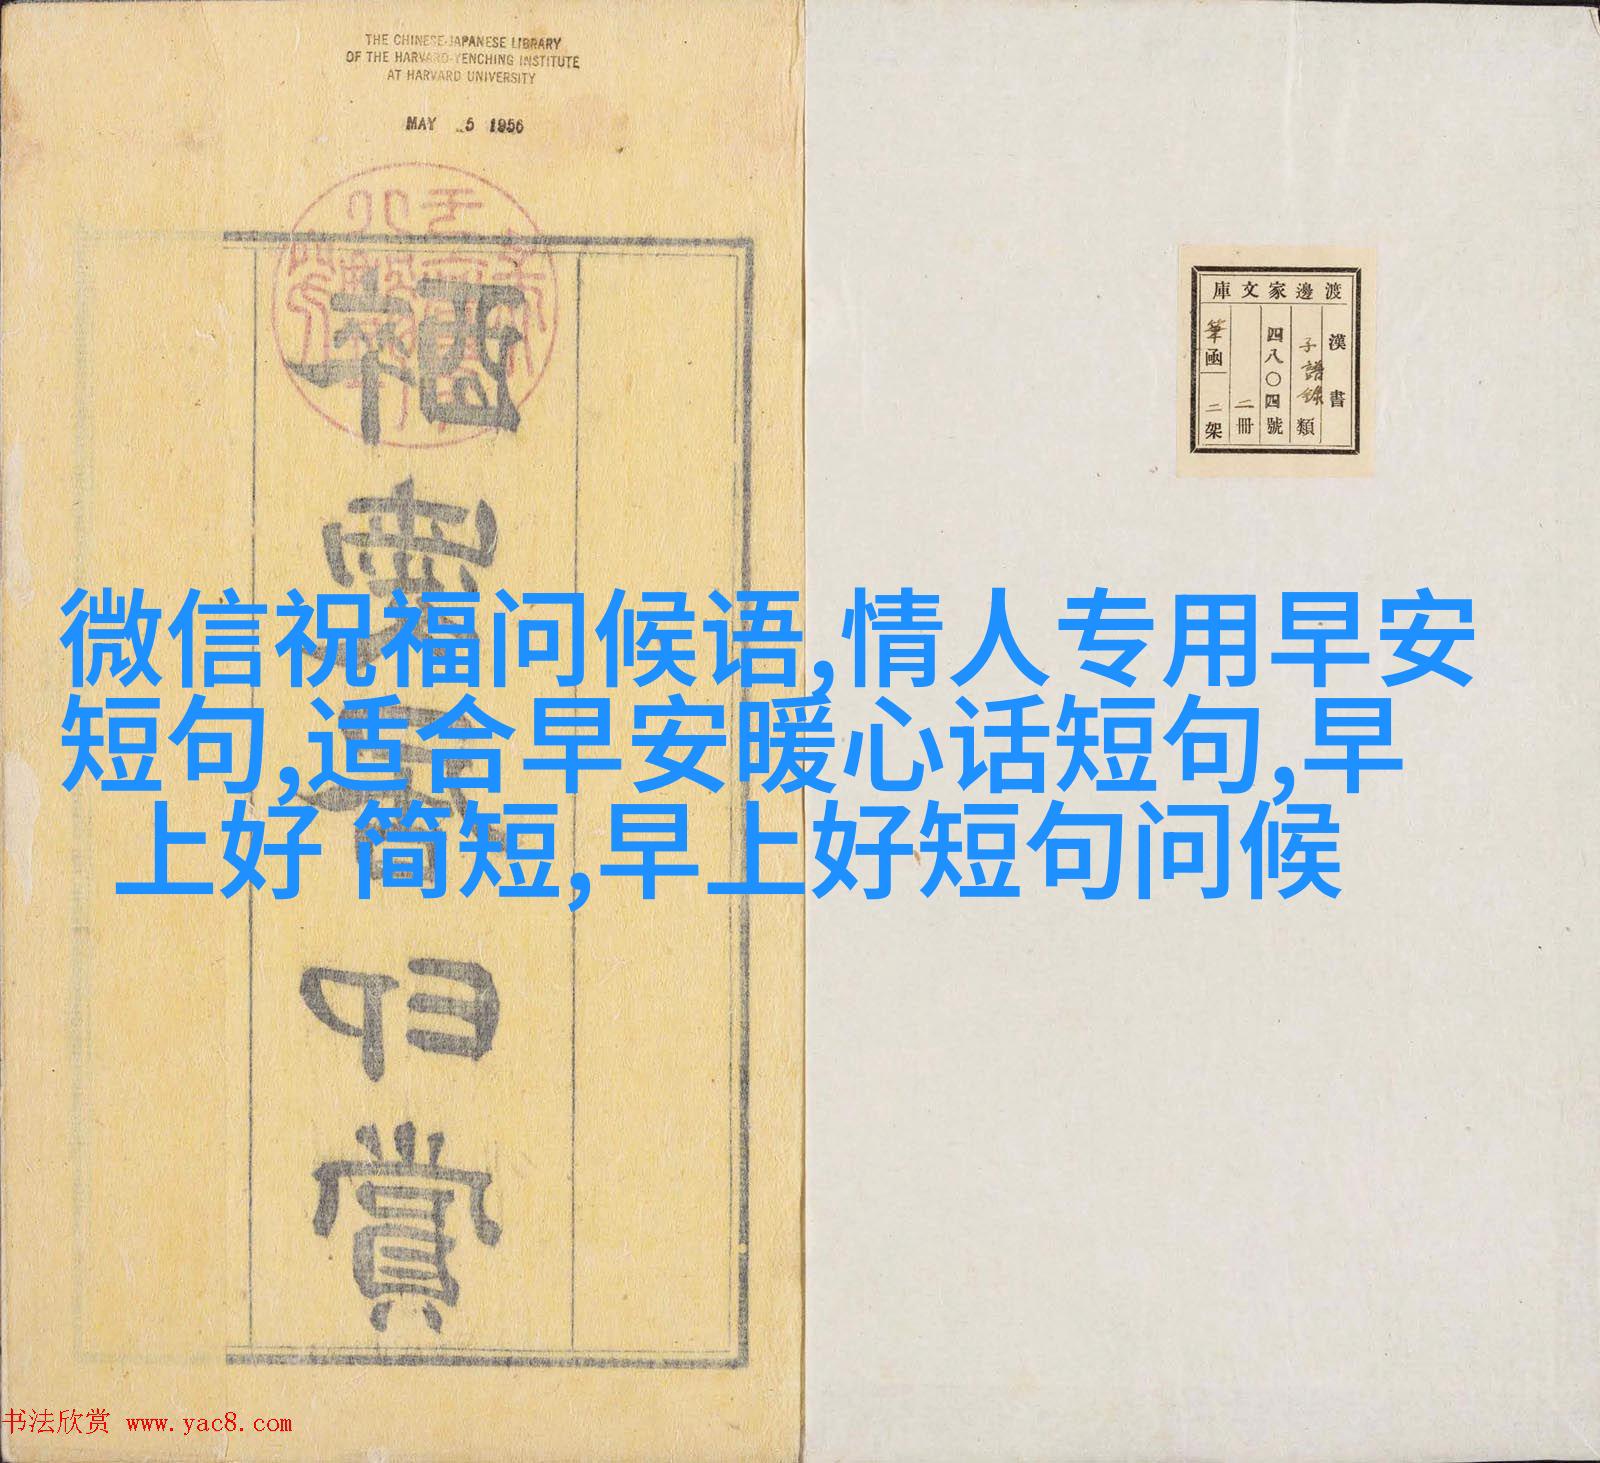 THE CHINESE-JAPANESE LIBRARY
OF THE HARVARD-YENCHING INSTITUTE
AT HARVARD UNIVERSITY
MAY 5 1956
渡邊家文庫
漢書
子譜錄類
四八〇四號
二冊
筆函二架
微信祝福问候语,情人专用早安
短句,适合早安暖心话短句,早
上好 简短,早上好短句问候
书法欣赏 www.yac8.com